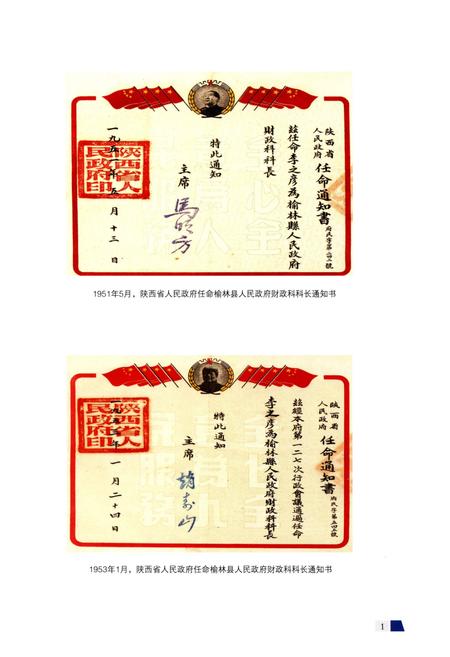 陕西省
人民政府
任命通知書
府民字第
茲任命李之彥為榆林縣人民政府
財政科科長
特此通知
主席
馬明方
一九五一年五月十三日
陕西省人民政府印
1951年5月，陕西省人民政府任命榆林县人民政府财政科科长通知书
陕西省
人民政府
任命通知書
府民字第五四三號
茲經本府第一二七次行政會議通過任命
李之彥為榆林縣人民政府財政科科長
特此通知
主席
趙壽山
一九五三年一月二十四日
陕西省人民政府印
1953年1月，陕西省人民政府任命榆林县人民政府财政科科长通知书
1